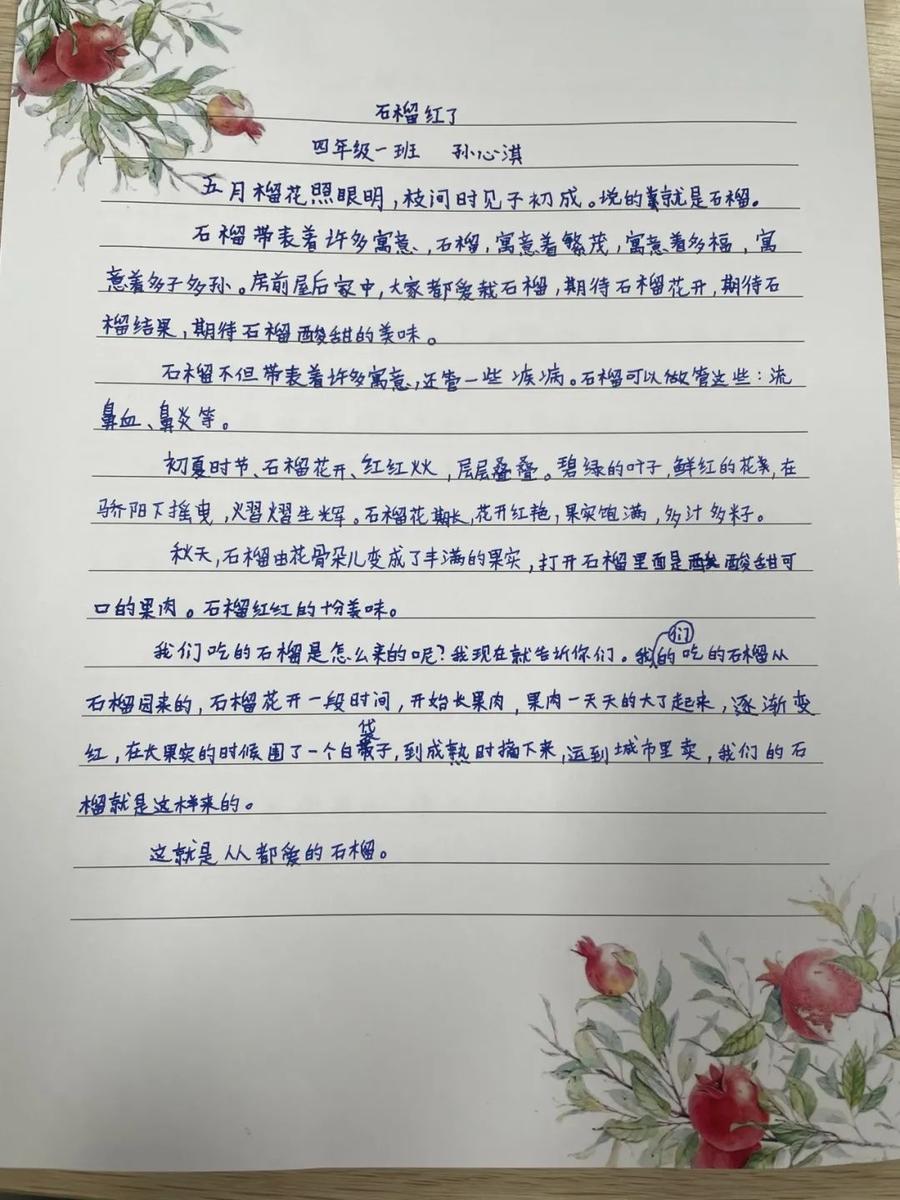 石榴红了
四年级一班 孙心淇
五月榴花照眼明，枝间时见子初成。说的就是石榴。
石榴带表着许多寓意，石榴，寓意着繁茂，寓意着多福，寓
意着多子多孙。房前屋后家中，大家都爱栽石榴，期待石榴花开，期待石
榴结果，期待石榴酸甜的美味。
石榴不但带表着许多寓意，还管一些疾病。石榴可以做管这些：流
鼻血、鼻炎等。
初夏时节、石榴花开、红红火火，层层叠叠。碧绿的叶子，鲜红的花，在
骄阳下摇曳，熠熠生辉。石榴花期长，花开红艳，果实饱满，多汁多籽。
秋天，石榴由花骨朵儿变成了丰满的果实，打开石榴里面是酸甜可
口的果肉。石榴红红的十分美味。
我们吃的石榴是怎么来的呢？我现在就告诉你们。我们的吃的石榴从
石榴园来的，石榴花开一段时间，开始长果肉，果肉一天天的大了起来，逐渐变
红，在长果实的时候围了一个白袋子，到成熟时摘下来，运到城市里卖，我们的石
榴就是这样来的。
这就是人人都爱的石榴。